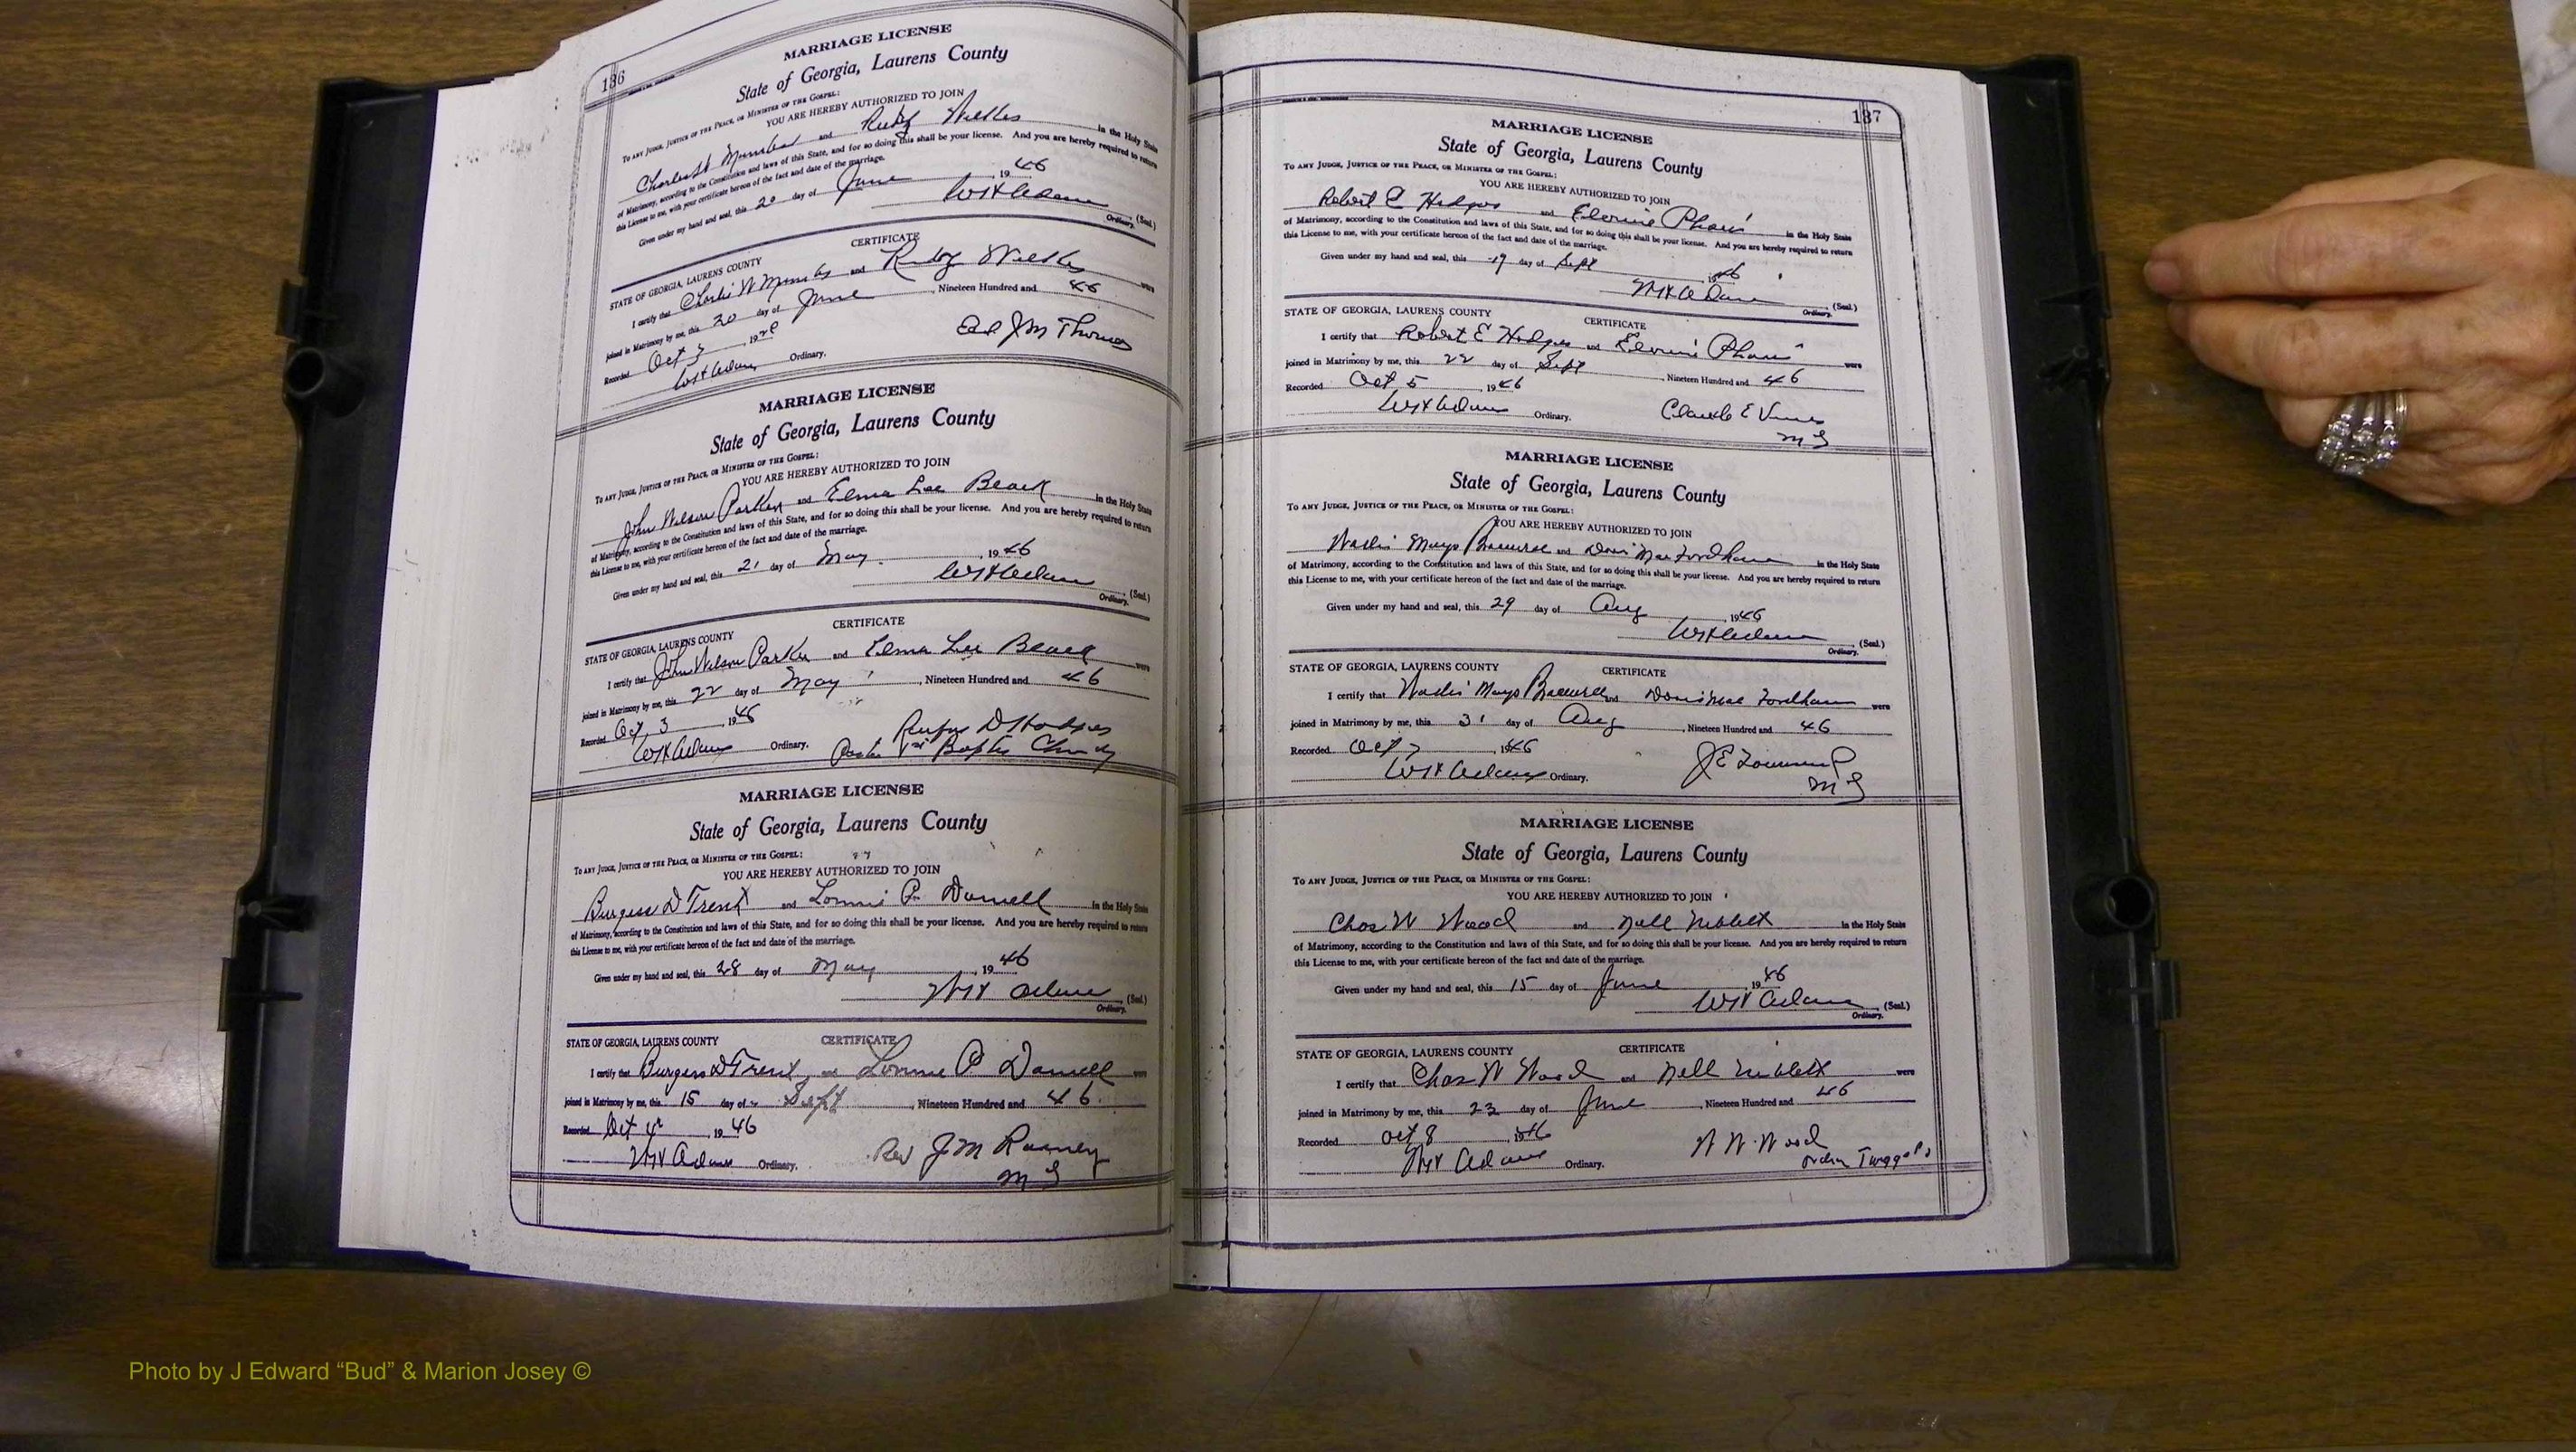 136
MARRIAGE LICENSE
State of Georgia, Laurens County
To any Judge, Justice of the Peace, or Minister of the Gospel:
YOU ARE HEREBY AUTHORIZED TO JOIN
and Ruby Wilkes in the Holy State
of Matrimony, according to the Constitution and laws of this State, and for so doing this shall be your license. And you are hereby required to return
this License to me, with your certificate hereon of the fact and date of the marriage.
Given under my hand and seal, this 20 day of June, 1946
(Seal.)
Ordinary.
CERTIFICATE
STATE OF GEORGIA, LAURENS COUNTY
I certify that and Ruby Wilkes were
joined in Matrimony by me, this 20 day of June, Nineteen Hundred and 46
Recorded Oct 3, 19
W H Adams Ordinary. J M Thomas
MARRIAGE LICENSE
State of Georgia, Laurens County
To any Judge, Justice of the Peace, or Minister of the Gospel:
YOU ARE HEREBY AUTHORIZED TO JOIN
John Wilson Parker and Elma Lee Beack in the Holy State
of Matrimony, according to the Constitution and laws of this State, and for so doing this shall be your license. And you are hereby required to return
this License to me, with your certificate hereon of the fact and date of the marriage.
Given under my hand and seal, this 21 day of May, 1946
W H Adams (Seal.)
Ordinary.
CERTIFICATE
STATE OF GEORGIA, LAURENS COUNTY
I certify that John Wilson Parker and Elma Lee Beack were
joined in Matrimony by me, this 22 day of May, Nineteen Hundred and 46
Recorded Oct 3, 1946 Rufus D Hodges
W H Adams Ordinary. Pastor 1st Baptist Church
MARRIAGE LICENSE
State of Georgia, Laurens County
To any Judge, Justice of the Peace, or Minister of the Gospel:
YOU ARE HEREBY AUTHORIZED TO JOIN
Burgess D Trent and Lonnie P. Darnell in the Holy State
of Matrimony, according to the Constitution and laws of this State, and for so doing this shall be your license. And you are hereby required to return
this License to me, with your certificate hereon of the fact and date of the marriage.
Given under my hand and seal, this 28 day of May, 1946
W H Adams (Seal.)
Ordinary.
CERTIFICATE
STATE OF GEORGIA, LAURENS COUNTY
I certify that Burgess D Trent, and Lonnie P Darnell were
joined in Matrimony by me, this 15 day of Sept, Nineteen Hundred and 46
Recorded Oct 4, 1946
W H Adams Ordinary. Rev J M Rainey
M G
137
MARRIAGE LICENSE
State of Georgia, Laurens County
To any Judge, Justice of the Peace, or Minister of the Gospel:
YOU ARE HEREBY AUTHORIZED TO JOIN
Robert E Hodges and in the Holy State
of Matrimony, according to the Constitution and laws of this State, and for so doing this shall be your license. And you are hereby required to return
this License to me, with your certificate hereon of the fact and date of the marriage.
Given under my hand and seal, this 19 day of Sept, 1946
W H Adams (Seal.)
Ordinary.
CERTIFICATE
STATE OF GEORGIA, LAURENS COUNTY
I certify that Robert E Hodges and were
joined in Matrimony by me, this 22 day of Sept, Nineteen Hundred and 46
Recorded Oct 5, 1946
W H Adams Ordinary. Claude E Vines
M G
MARRIAGE LICENSE
State of Georgia, Laurens County
To any Judge, Justice of the Peace, or Minister of the Gospel:
YOU ARE HEREBY AUTHORIZED TO JOIN
Mays and Mae Fordham in the Holy State
of Matrimony, according to the Constitution and laws of this State, and for so doing this shall be your license. And you are hereby required to return
this License to me, with your certificate hereon of the fact and date of the marriage.
Given under my hand and seal, this 29 day of Aug, 1946
W H Adams (Seal.)
Ordinary.
CERTIFICATE
STATE OF GEORGIA, LAURENS COUNTY
I certify that Mays and Mae Fordham were
joined in Matrimony by me, this 31 day of Aug, Nineteen Hundred and 46
Recorded Oct 7, 1946
W H Adams Ordinary. J E Townsend
M G
MARRIAGE LICENSE
State of Georgia, Laurens County
To any Judge, Justice of the Peace, or Minister of the Gospel:
YOU ARE HEREBY AUTHORIZED TO JOIN
Chas W Wood and Nell Niblett in the Holy State
of Matrimony, according to the Constitution and laws of this State, and for so doing this shall be your license. And you are hereby required to return
this License to me, with your certificate hereon of the fact and date of the marriage.
Given under my hand and seal, this 15 day of June, 1946
W H Adams (Seal.)
Ordinary.
CERTIFICATE
STATE OF GEORGIA, LAURENS COUNTY
I certify that Chas W Wood and Nell Niblett were
joined in Matrimony by me, this 23 day of June, Nineteen Hundred and 46
Recorded Oct 8, 1946
W H Adams Ordinary. W W Wood
Photo by J Edward “Bud” & Marion Josey ©